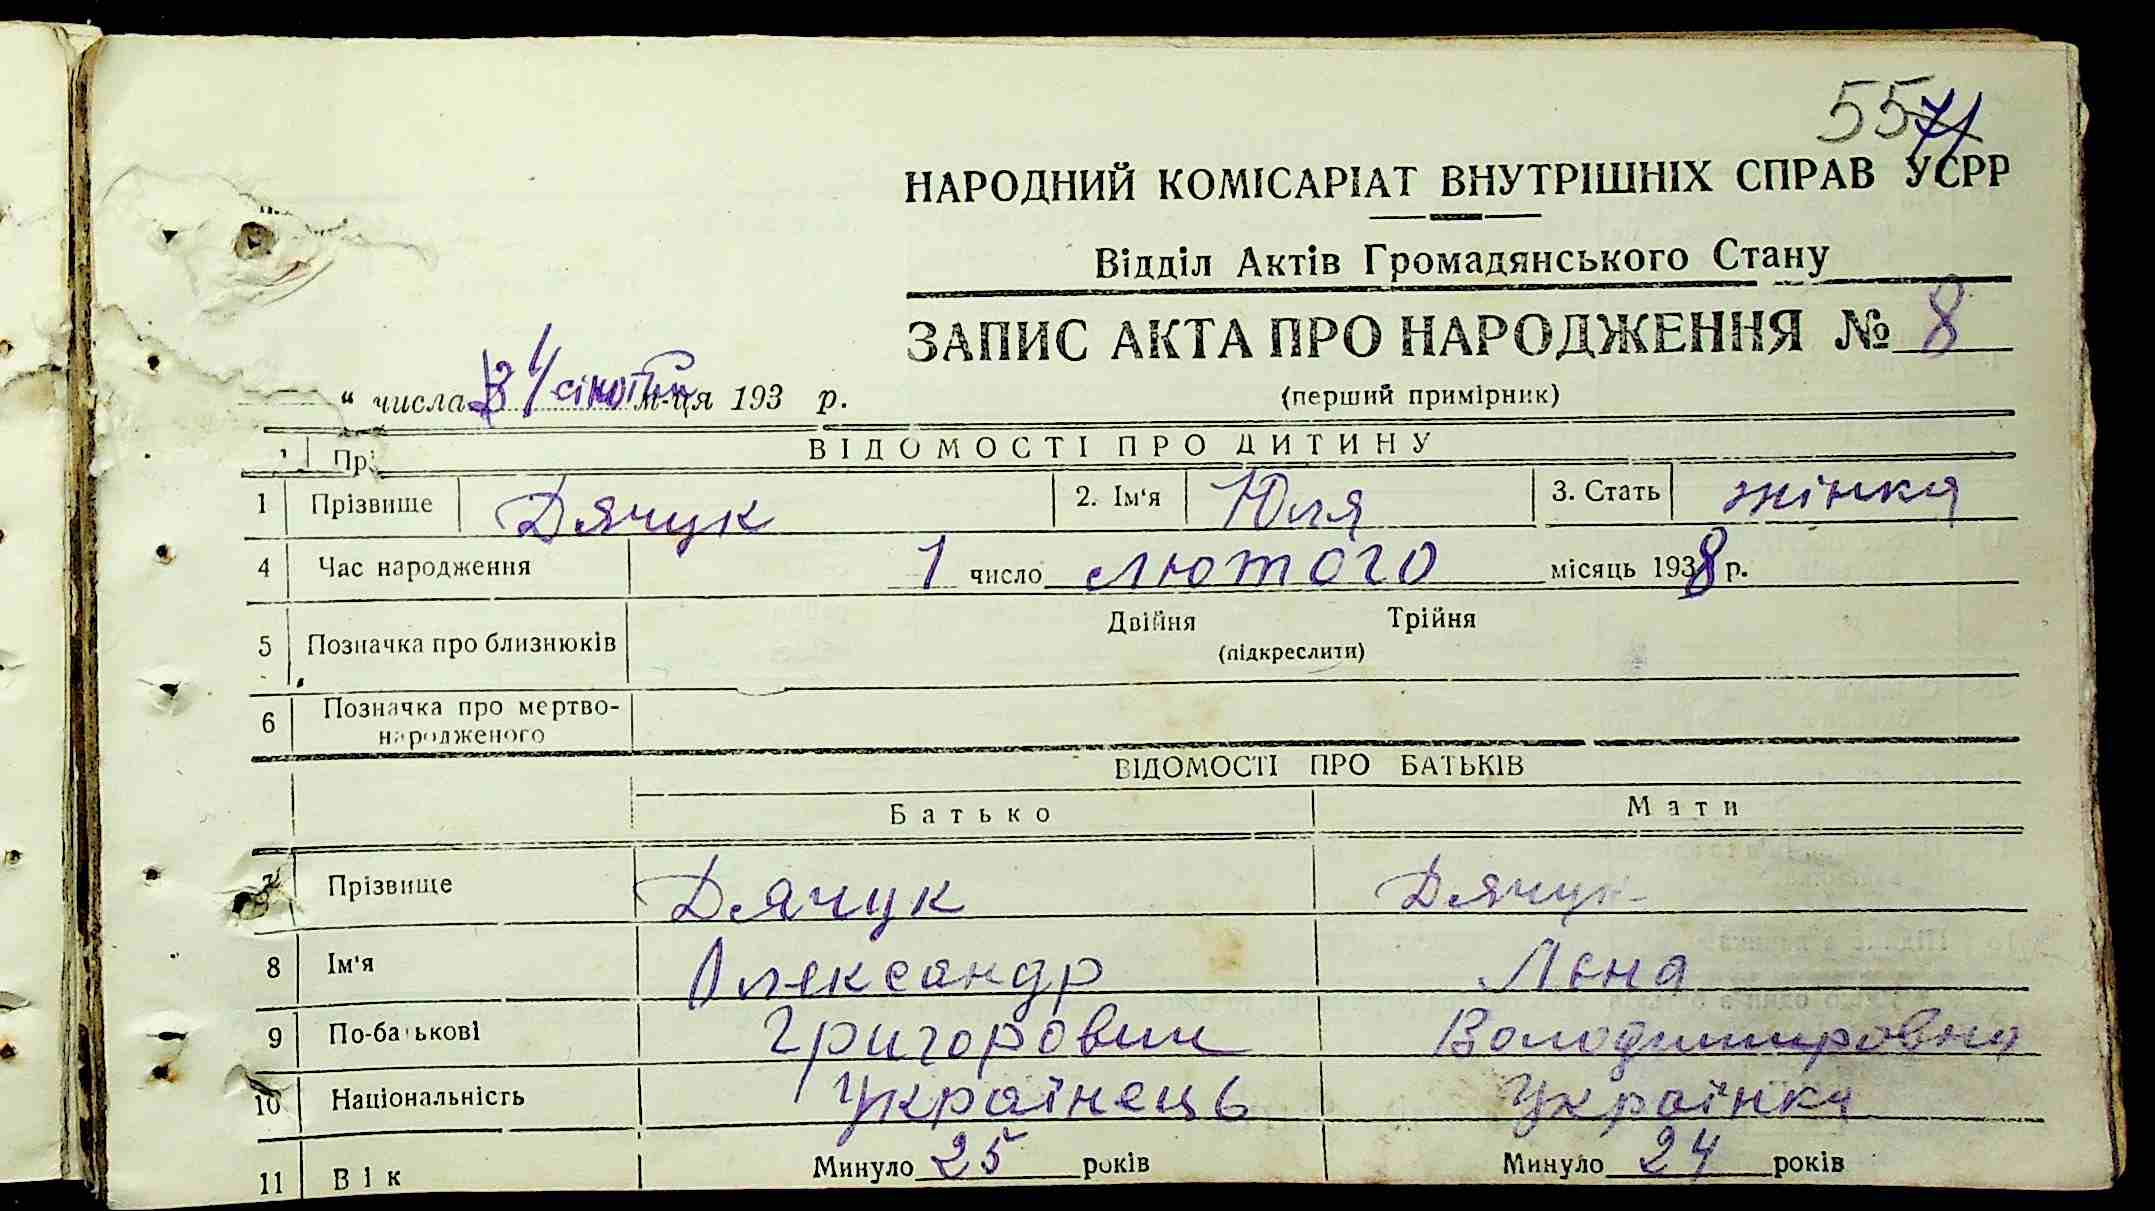 55
НАРОДНИЙ КОМІСАРІАТ ВНУТРІШНІХ СПРАВ УСРР
Відділ Актів Громадянського Стану
ЗАПИС АКТА ПРО НАРОДЖЕННЯ № 8
(перший примірник)
“ числа м-ця 193 р.
ВІДОМОСТІ ПРО ДИТИНУ
1 Прізвище Дячук 2. Ім'я Юля 3. Стать жінка
4 Час народження 1 число лютого місяць 1938 р.
5 Позначка про близнюків Двійня Трійня
(підкреслити)
6 Позначка про мертво-
народженого
ВІДОМОСТІ ПРО БАТЬКІВ
Батько Мати
7 Прізвище Дячук Дячук
8 Ім'я Олександр Лєна
9 По-батькові Григорович Володимировна
10 Національність Українець Українка
11 Вік Минуло 25 років Минуло 24 років